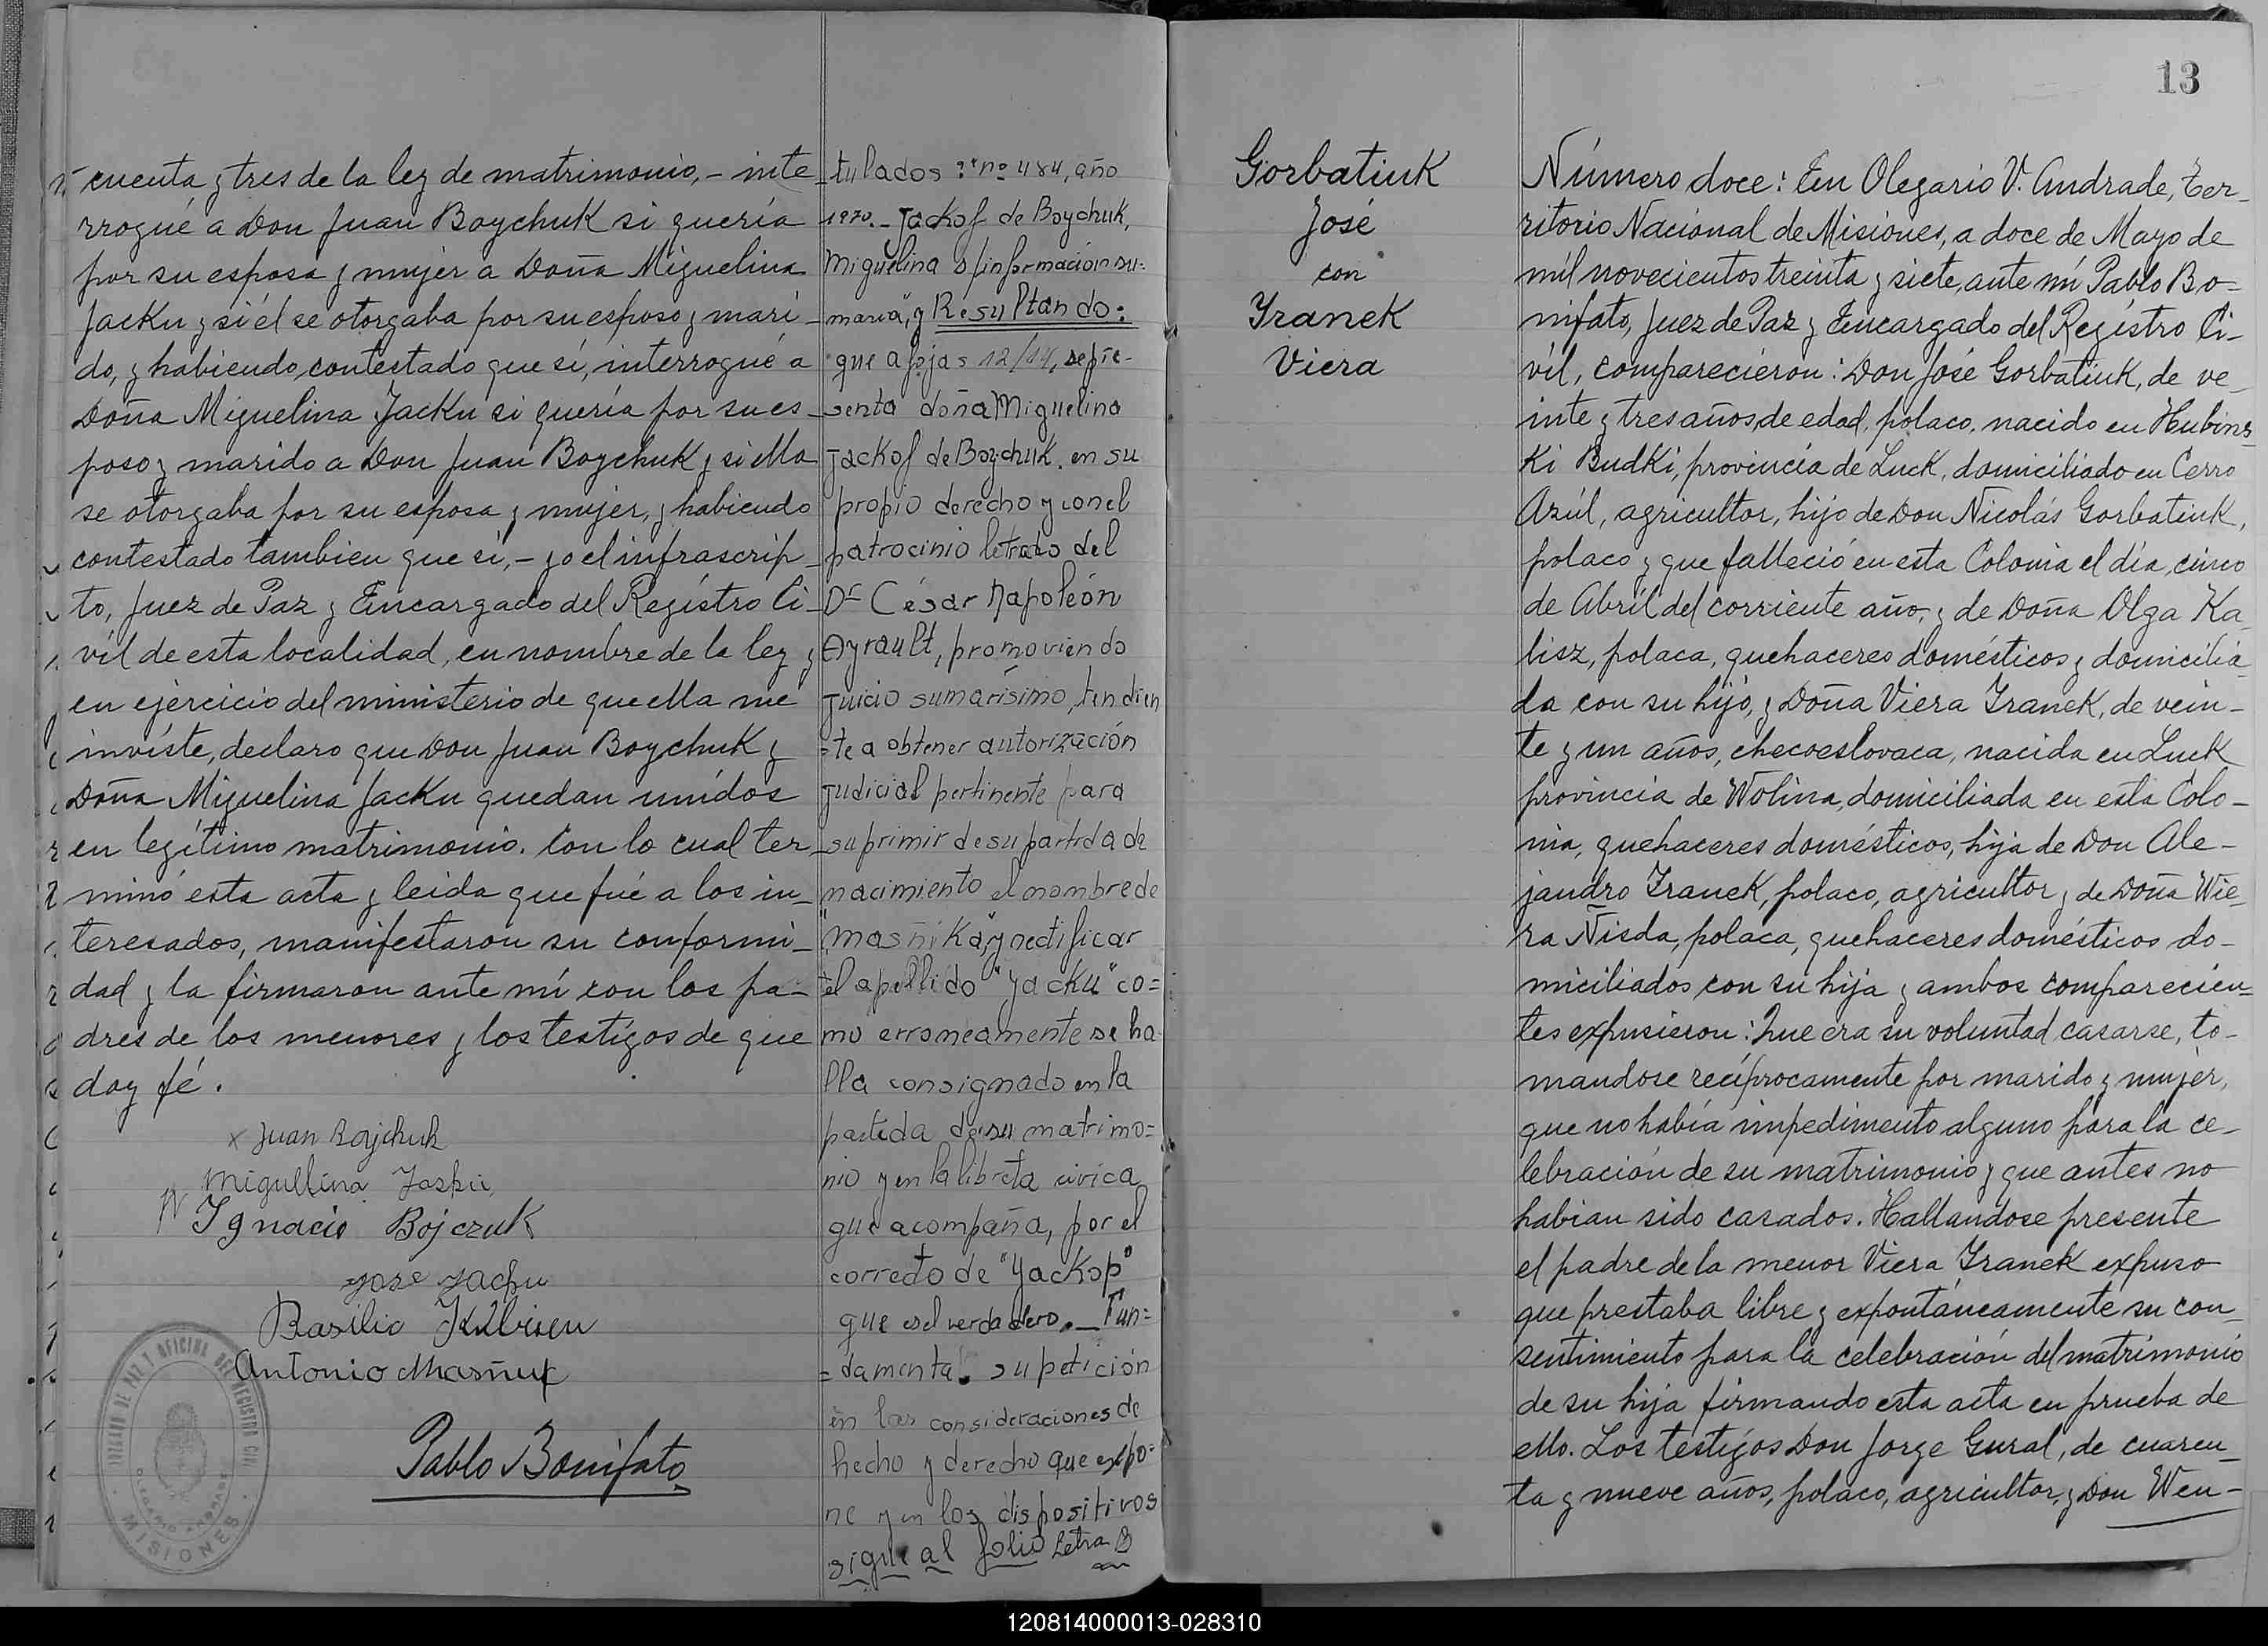 cuenta y tres de la ley de matrimonio, - inte
rrogué a Don Juan Boychuk si quería
por su esposa y mujer a Doña Miguelina
Jacku y si él se otorgaba por su esposo y mari
do, y habiendo contestado que sí, interrogué a
Doña Miguelina Jacku si quería por su es
poso y marido a Don Juan Boychuk y si ella
se otorgaba por su esposa y mujer, y habiendo
contestado tambien que si, - yo el infrascrip
to, Juez de Paz y Encargado del Regístro Ci
víl de esta localidad, en nombre de la ley y
en ejercicio del ministerio de que ella me
invíste, declaro que Don Juan Boychuk y
Doña Miguelina Jacku quedan unídos
en legítimo matrimonio. Con lo cual ter
minó esta acta y leida que fué a los in
teresados, manifestaron su conformi
dad y la firmaron ante mí con los pa
dres de los menores y los testígos de que
doy fé.
x Juan Bojchuk
Miguelina
Ignacio Bojczuk
Jose Jachu
Basilio
Antonio Masñuk
Pablo Bonifato
JUZGADO DE PAZ Y OFICINA DEL REGISTRO CIVIL
OLEGARIO ANDRADE
MISIONES
tulados: "nº 484, año
1970. - Jackof de Boychuk,
Miguelina s/información su=
maria", y Resultando:
que a fojas 12/14, se pre-
senta doña Miguelina
Jackof de Boychuk, en su
propio derecho y con el
patrocinio letrado del
Dr César Napoleón
Ayrault, promoviendo
juicio sumarísimo, tendien
=te a obtener autorización
judicial pertinente para
suprimir de su partida de
nacimiento el nombre de
"Masñika", y rectificar
el apellido "Yacku" co=
mo erroneamente se ha
lla consignado en la
partida de su matrimo=
nio y en la libreta civica
que acompaña, por el
correcto de "Yackop"
que es el verdadero. - Fun=
=damenta su petición
en las consideraciones de
hecho y derecho que expo=
ne y en los dispositivos
sigue al folio Letra B
13
Gorbatiuk
José
con
Iranek
Viera
Número doce: En Olegario V. Andrade, Ter
ritorio Nacional de Misiones, a doce de Mayo de
mil novecientos treinta y siete, ante mí Pablo Bo
nifato, Juez de Paz y Encargado del Regístro Ci
víl, comparecieron: Don José Gorbatiuk, de ve
inte y tres años de edad, polaco, nacido en Hubins
ki Budki, provincia de Luck, domiciliado en Cerro
Azúl, agricultor, hijo de Don Nicolás Gorbatiuk,
polaco y que falleció en esta Colonia el día cinco
de Abríl del corriente año, y de Doña Olga Ka
lisz, polaca, quehaceres domésticos y domicilia
da con su hijo, y Doña Viera Iranek, de vein-
te y un años, checoeslovaca, nacida en Luck
provincia de Wolina, domiciliada en esta Colo-
nia, quehaceres domésticos, hija de Don Ale-
jandro Iranek, polaco, agricultor y de Doña Wie
ra Nisda, polaca, quehaceres domésticos do-
miciliados con su hija y ambos comparecien
tes expusieron: Que era su voluntad casarse, to-
mandose recíprocamente por marido y mujer,
que no había impedimento alguno para la ce-
lebración de su matrimonio y que antes no
habian sido casados. Hallandose presente
el padre de la menor Viera Iranek expuso
que prestaba libre y expontáneamente su con
sentimiento para la celebración del matrimonio
de su hija firmando esta acta en prueba de
ello. Los testígos Don Jorge Gural, de cuaren
ta y nueve años, polaco, agricultor, y Don Wen-
120814000013-028310